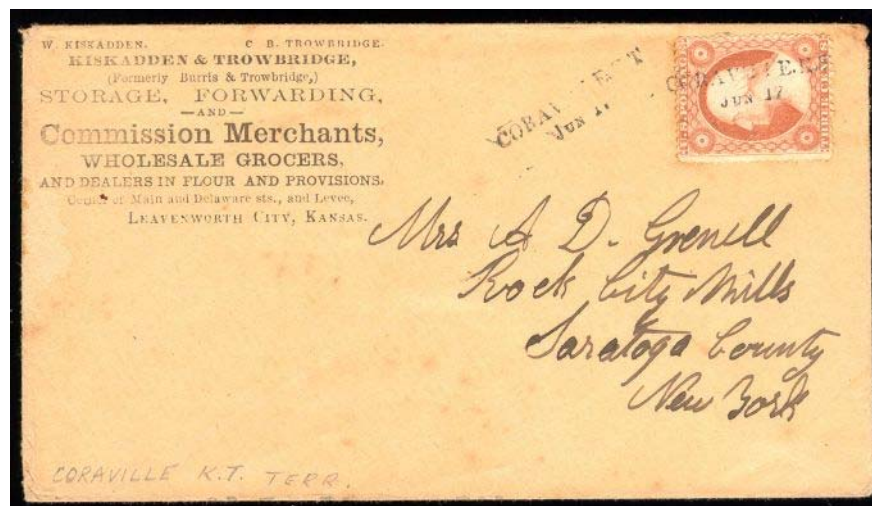 W. KISKADDEN. C. B. TROWBRIDGE.
KISKADDEN & TROWBRIDGE,
(Formerly Burris & Trowbridge,)
STORAGE, FORWARDING,
—AND—
Commission Merchants,
WHOLESALE GROCERS,
AND DEALERS IN FLOUR AND PROVISIONS,
Corner of Main and Delaware sts., and Levee,
LEAVENWORTH CITY, KANSAS.
JUN 17
JUN 17
Mrs A D. Grenell
Rock City Mills
Saratoga County
New York
CORAVILLE K.T. TERR.